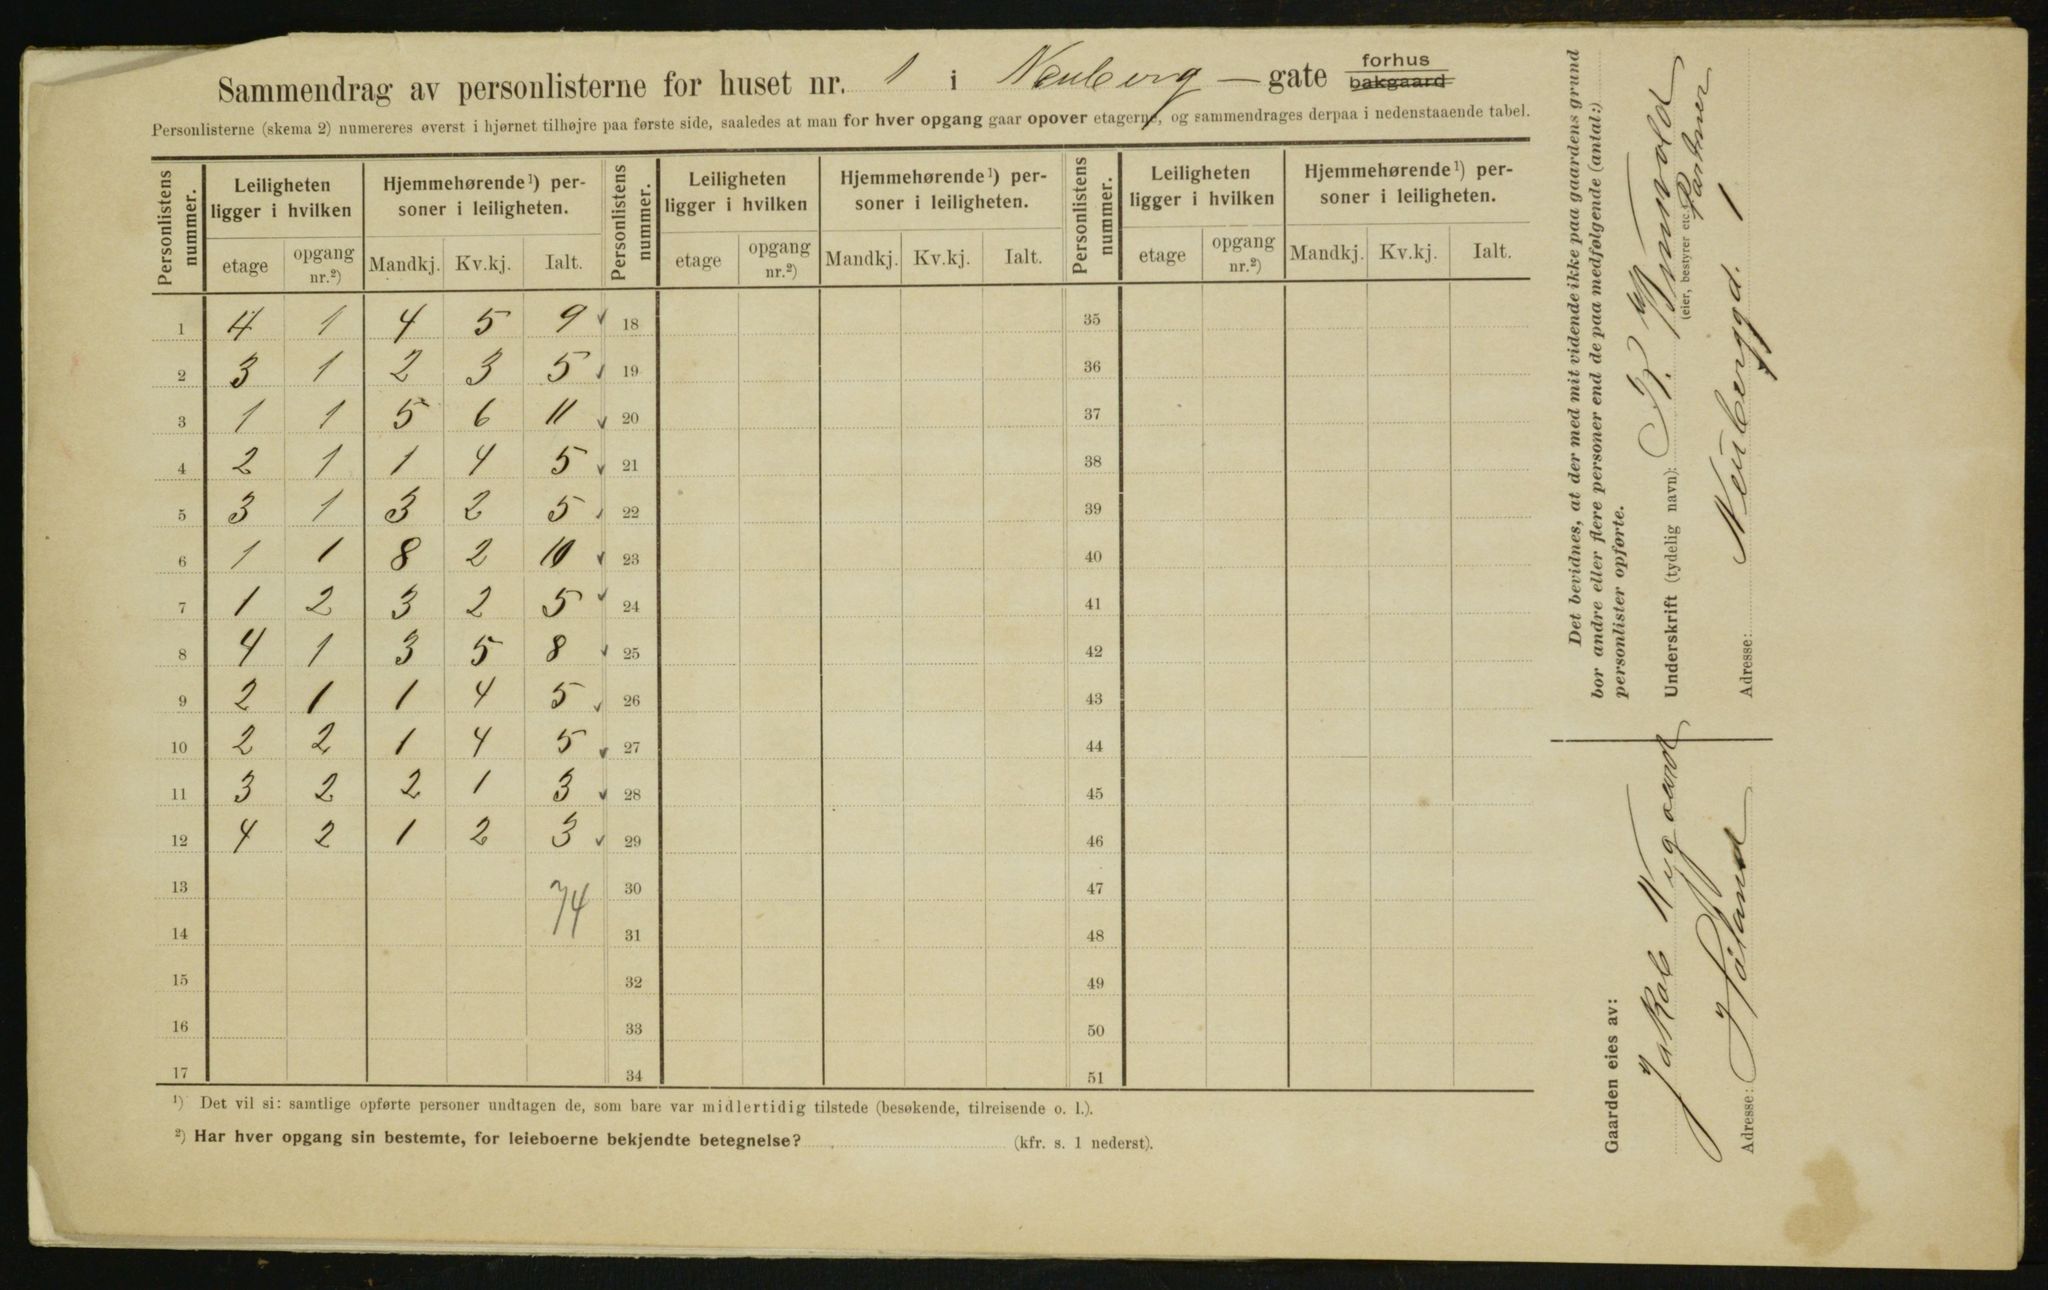 Sammendrag av personlisterne for huset nr. 1 i Neuberg — gate forhus bakgaard
Personlisterne (skema 2) numereres øverst i hjørnet tilhøjre paa første side, saaledes at man for hver opgang gaar opover etagerne, og sammendrages derpaa i nedenstaaende tabel.
Personlistens nummer. Leiligheten ligger i hvilken Hjemmehørende¹) personer i leiligheten. Personlistens nummer. Leiligheten ligger i hvilken Hjemmehørende¹) personer i leiligheten. Personlistens nummer. Leiligheten ligger i hvilken Hjemmehørende¹) personer i leiligheten.
etage opgang nr.²) Mandkj. Kv.kj. Ialt. etage opgang nr.²) Mandkj. Kv.kj. Ialt. etage opgang nr.²) Mandkj. Kv.kj. Ialt.
1 4 1 4 5 9 18 35
2 3 1 2 3 5 19 36
3 1 1 5 6 11 20 37
4 2 1 1 4 5 21 38
5 3 1 3 2 5 22 39
6 1 1 8 2 10 23 40
7 1 2 3 2 5 24 41
8 4 1 3 5 8 25 42
9 2 1 1 4 5 26 43
10 2 2 1 4 5 27 44
11 3 2 2 1 3 28 45
12 4 2 1 2 3 29 46
13 74 30 47
14 31 48
15 32 49
16 33 50
17 34 51
¹) Det vil si: samtlige opførte personer undtagen de, som bare var midlertidig tilstede (besøkende, tilreisende o. l.).
²) Har hver opgang sin bestemte, for leieboerne bekjendte betegnelse? (kfr. s. 1 nederst).
Det bevidnes, at der med mit vidende ikke paa gaardens grund
bor andre eller flere personer end de paa medfølgende (antal:)
personlister opførte.
Underskrift (tydelig navn):
(eier, bestyrer etc.)
Adresse: Neuberggd. 1
Gaarden eies av:
Jakob Nygaard
Adresse: Høland